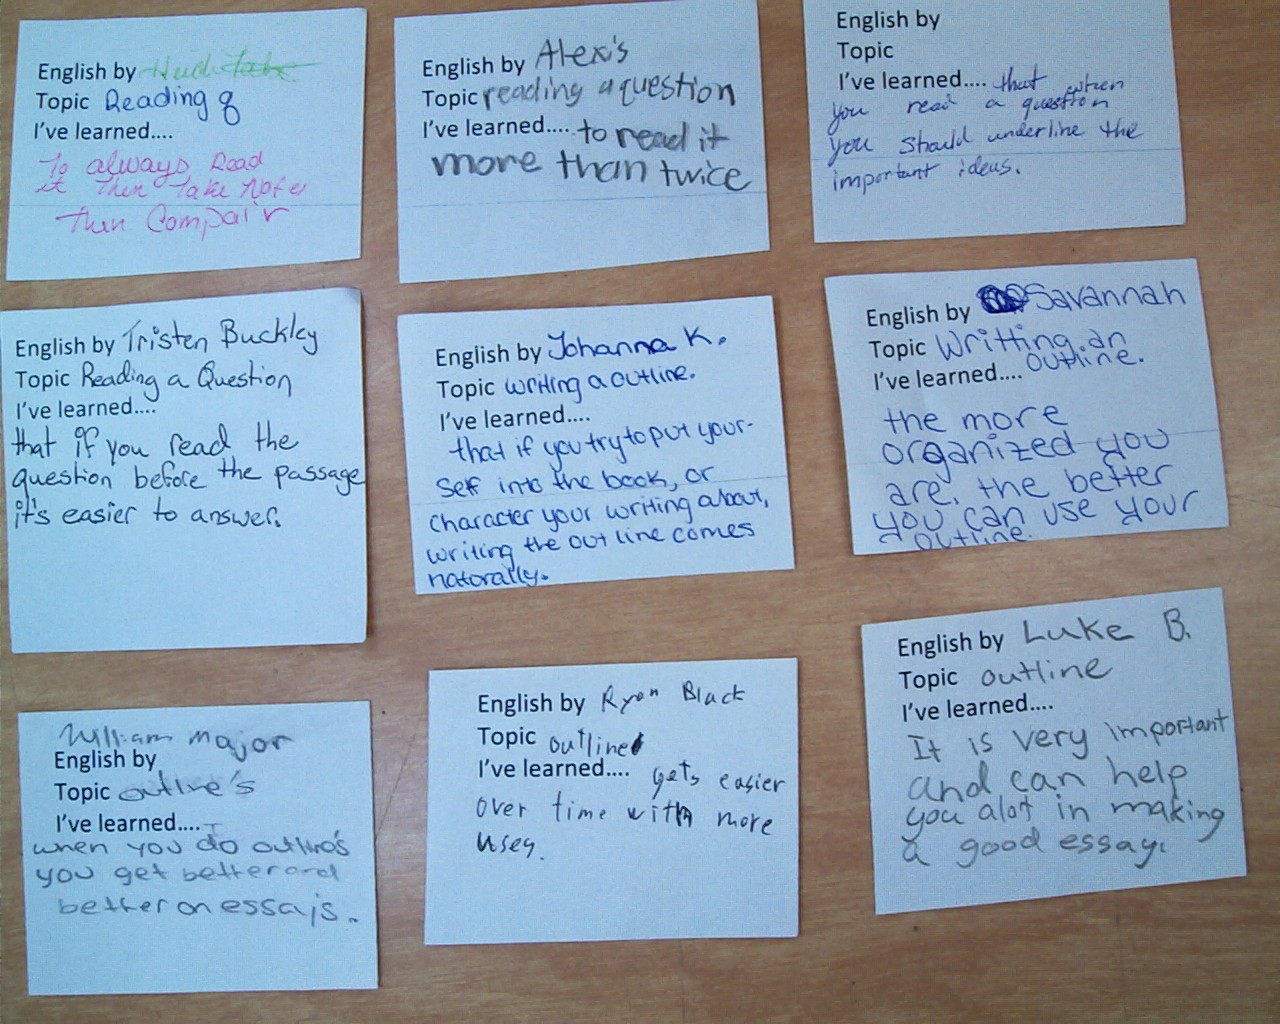 English by
Topic Reading q
I've learned....
To always Read
it then Take Note
then Compair
English by Alexis
Topic reading a question
I've learned.... to read it
more than twice
English by
Topic
I've learned.... that when
you read a question
you should underline the
important ideas.
English by Tristen Buckley
Topic Reading a Question
I've learned....
that if you read the
question before the passage
it's easier to answer.
English by Johanna K.
Topic writing a outline.
I've learned....
that if you try to put your-
self into the book, or
character your writing about,
writing the out line comes
natorally.
English by Savannah
Topic Writting an
outline.
I've learned....
the more
organized you
are, the better
you can use your
outline.
William major
English by
Topic outline's
I've learned....
when you do outline's
you get better and
better on essajs.
English by Ryan Black
Topic outline
I've learned.... gets easier
over time with more
uses.
English by Luke B.
Topic outline
I've learned....
It is very important
and can help
you alot in making
a good essay.